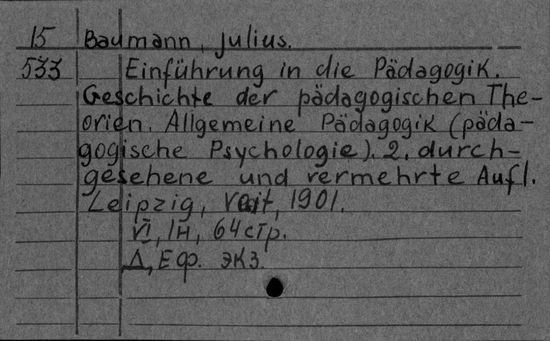 15 Baumann, Julius.
533 Einführung in die Pädagogik.
Geschichte der pädagogischen The-
orien. Allgemeine Pädagogik (päda-
gogische Psychologie). 2. durch-
gesehene und vermehrte Aufl.
Leipzig, Veit, 1901.
VI, 1н, 64 стр.
Д, Еф. экз.